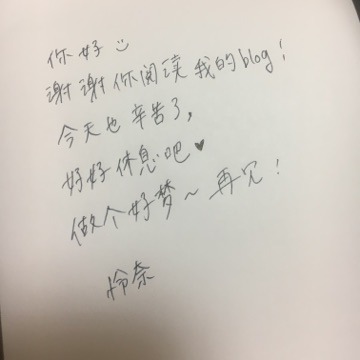 你好☺
谢谢你阅读我的blog!
今天也辛苦了,
好好休息吧♥
做个好梦~再见!
怜奈